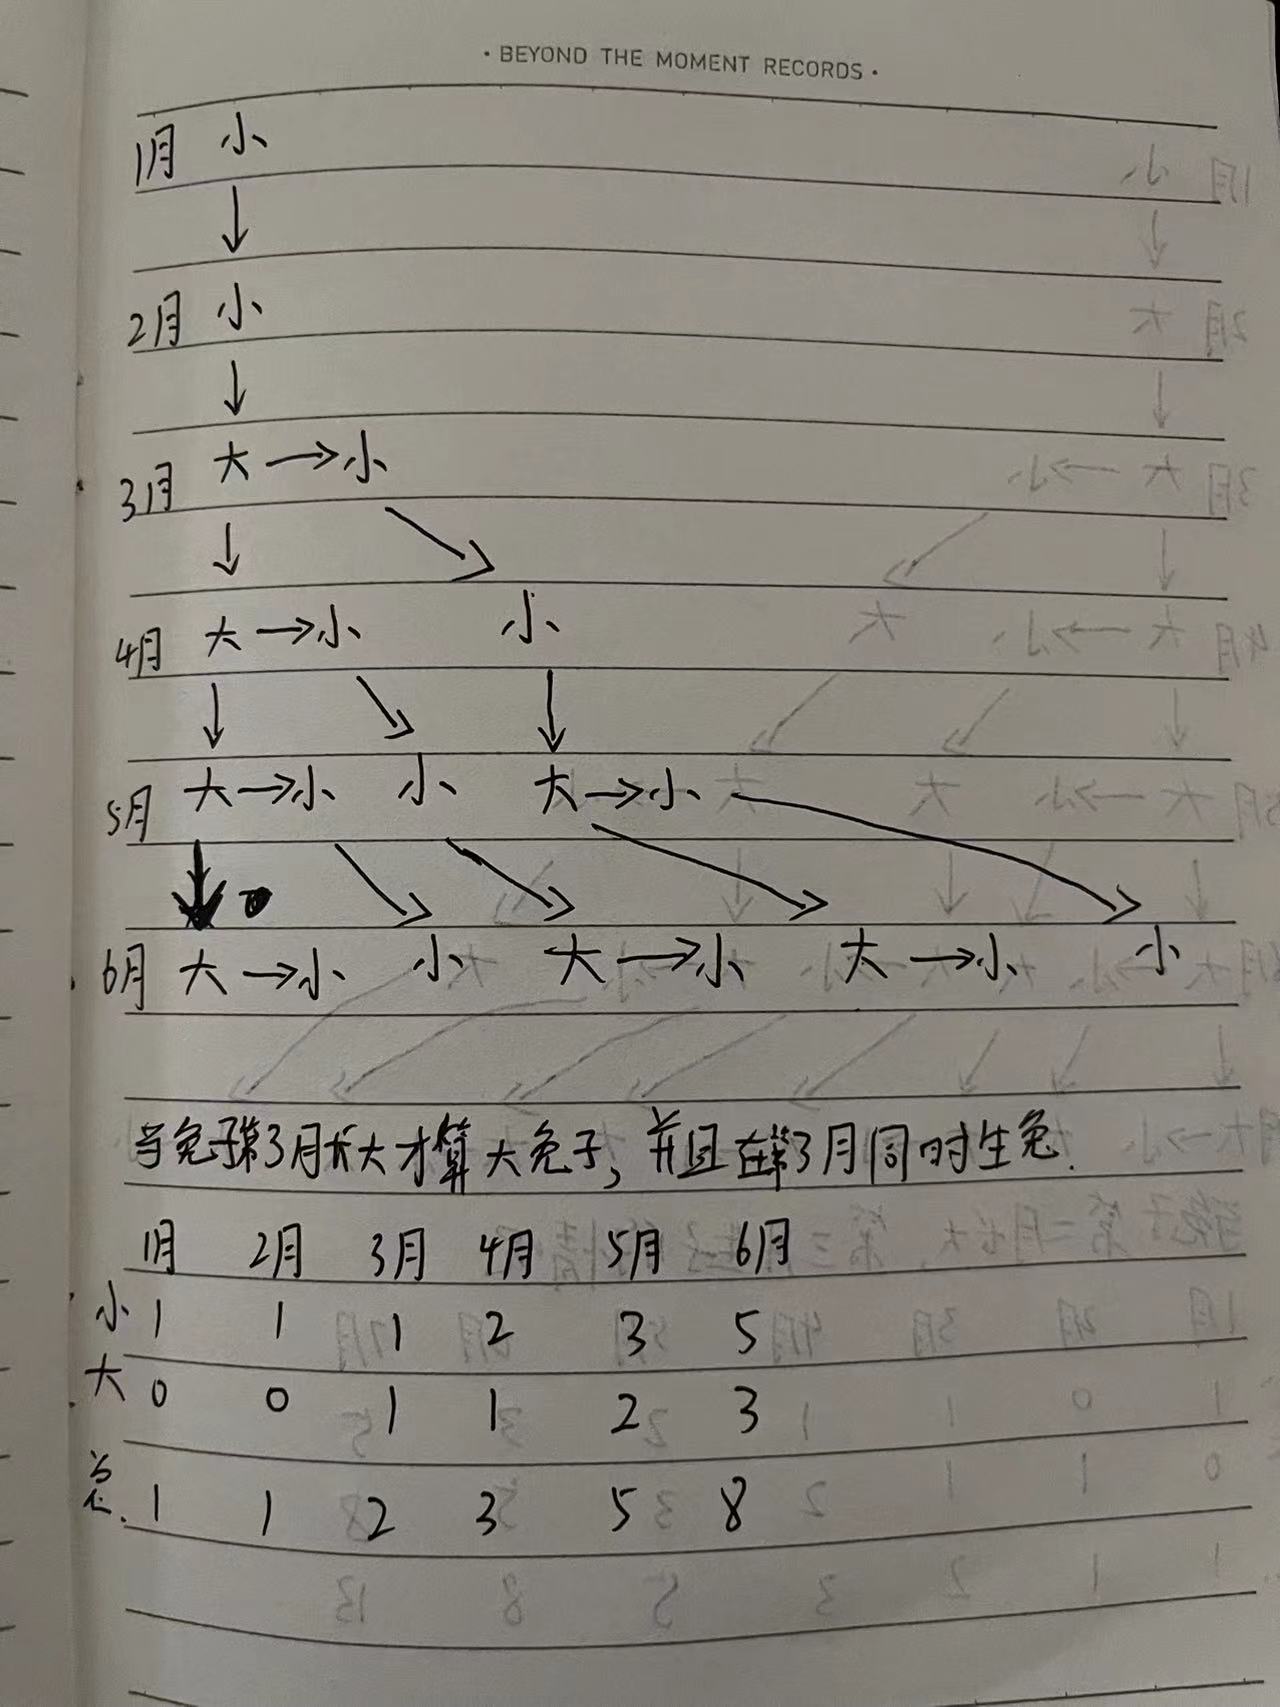 · BEYOND THE MOMENT RECORDS ·
1月 小
↓
2月 小
↓
3月 大→小
↓ ↘
4月 大→小 小
↓ ↘ ↓
5月 大→小 小 大→小
↓ ↘ ↘ ↘ ↘
6月 大→小 小 大→小 大→小 小
当兔子第3月长大才算大兔子，并且在第3月同时生兔.
1月 2月 3月 4月 5月 6月
小 1 1 1 2 3 5
大 0 0 1 1 2 3
总. 1 1 2 3 5 8